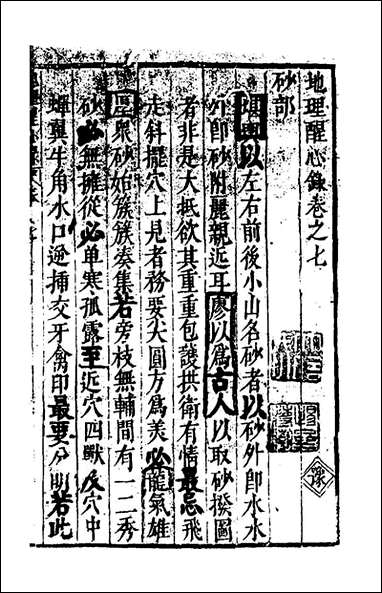 地理醒心錄卷之七
砂部
以左右前後小山名砂者以砂外即水水
外即砂附麗親近耳廖以爲古人以取砂撥圖
者非是大抵欲其重重包護拱衛有情最忌飛
走斜擺穴上見者務要尖圓方爲美必龍氣雄
衆砂始簇簇湊集若旁枝無輔間有一二秀
砂必無擁從必单寒孤露至近穴四獸及穴中
蟬翼牛角水口逆揷交牙禽印最要分明若此
豫